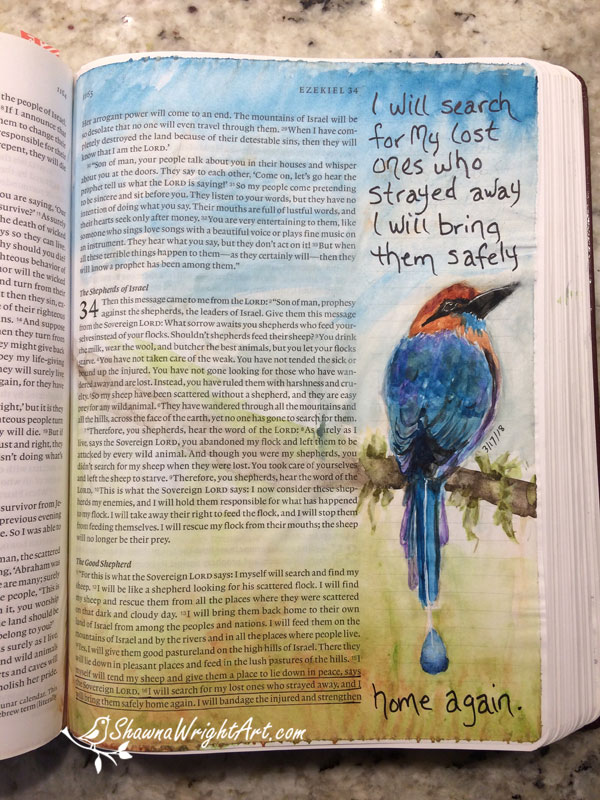 1164
the people of Israel,
⁸If I announce that
them to change their
responsible for their
repent, they will die
you are saying, 'Our
survive?' ¹¹As surely
the death of wicked
ays so they can live.
hy should you die?
ghteous behavior of
nor will the wicked
nd turn from their
t then they sin, ex-
of their righteous
And suppose
hen they turn from
ey might give back
bey my life-giving
hey will surely live
gain, for they have
right,' but it is they
ghteous people turn
y will die. But if
ust and right, they
isn't doing what's
survivor from Je-
previous evening
e. So I was able to
man, the scattered
ng, 'Abraham was
e are many; surely
e people, "This is
n it, you worship
he land should be
belong to you?"
s surely as I live,
nd wild animals
rts and caves will
molish her pride.
unar calendar. This
ebrew term (literally
1165
EZEKIEL 34
Her arrogant power will come to an end. The mountains of Israel will be
so desolate that no one will even travel through them. ²⁹When I have com-
pletely destroyed the land because of their detestable sins, then they will
know that I am the LORD.'
³⁰"Son of man, your people talk about you in their houses and whisper
about you at the doors. They say to each other, 'Come on, let's go hear the
prophet tell us what the LORD is saying!' ³¹So my people come pretending
to be sincere and sit before you. They listen to your words, but they have no
intention of doing what you say. Their mouths are full of lustful words, and
their hearts seek only after money. ³²You are very entertaining to them, like
someone who sings love songs with a beautiful voice or plays fine music on
an instrument. They hear what you say, but they don't act on it! ³³But when
all these terrible things happen to them—as they certainly will—then they
will know a prophet has been among them."
The Shepherds of Israel
34 Then this message came to me from the LORD: ²"Son of man, prophesy
against the shepherds, the leaders of Israel. Give them this message
from the Sovereign LORD: What sorrow awaits you shepherds who feed your-
selves instead of your flocks. Shouldn't shepherds feed their sheep? ³You drink
the milk, wear the wool, and butcher the best animals, but you let your flocks
starve. ⁴You have not taken care of the weak. You have not tended the sick or
bound up the injured. You have not gone looking for those who have wan-
dered away and are lost. Instead, you have ruled them with harshness and cru-
elty. ⁵So my sheep have been scattered without a shepherd, and they are easy
prey for any wild animal. ⁶They have wandered through all the mountains and
all the hills, across the face of the earth, yet no one has gone to search for them.
⁷"Therefore, you shepherds, hear the word of the LORD: ⁸As surely as I
live, says the Sovereign LORD, you abandoned my flock and left them to be
attacked by every wild animal. And though you were my shepherds, you
didn't search for my sheep when they were lost. You took care of yourselves
and left the sheep to starve. ⁹Therefore, you shepherds, hear the word of the
LORD. ¹⁰This is what the Sovereign LORD says: I now consider these shep-
herds my enemies, and I will hold them responsible for what has happened
to my flock. I will take away their right to feed the flock, and I will stop them
from feeding themselves. I will rescue my flock from their mouths; the sheep
will no longer be their prey.
The Good Shepherd
¹¹"For this is what the Sovereign LORD says: I myself will search and find my
sheep. ¹²I will be like a shepherd looking for his scattered flock. I will find
my sheep and rescue them from all the places where they were scattered
on that dark and cloudy day. ¹³I will bring them back home to their own
land of Israel from among the peoples and nations. I will feed them on the
mountains of Israel and by the rivers and in all the places where people live.
¹⁴Yes, I will give them good pastureland on the high hills of Israel. There they
will lie down in pleasant places and feed in the lush pastures of the hills. ¹⁵I
myself will tend my sheep and give them a place to lie down in peace, says
the Sovereign LORD. ¹⁶I will search for my lost ones who strayed away, and I
will bring them safely home again. I will bandage the injured and strengthen
I will search
for My lost
ones who
strayed away
I will bring
them safely
3/17/18
home again.
ShawnaWrightArt.com